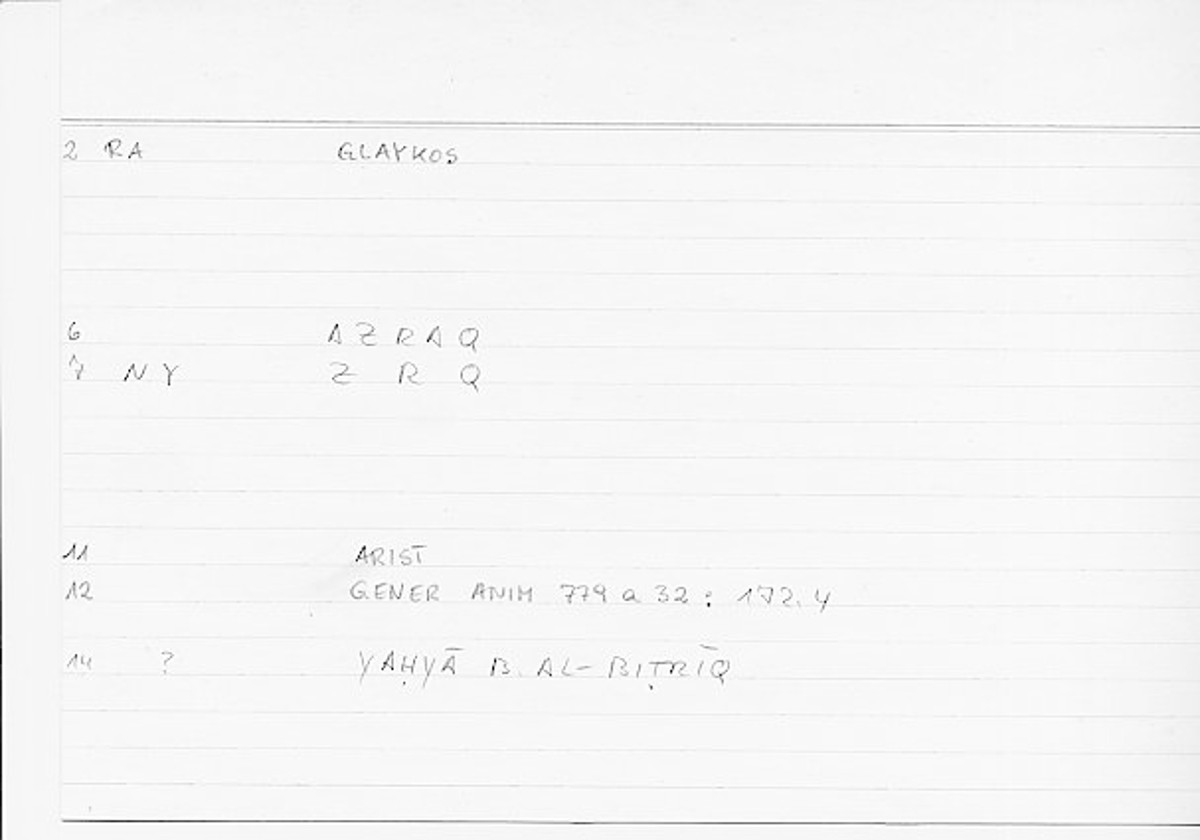 2 RA GLAYKOS
6 AZRAQ
7 NY Z R Q
11 ARIST
12 GENER ANIM 779 a 32 : 172.4
14 ? YAḤYĀ B. AL-BIṬRĪQ